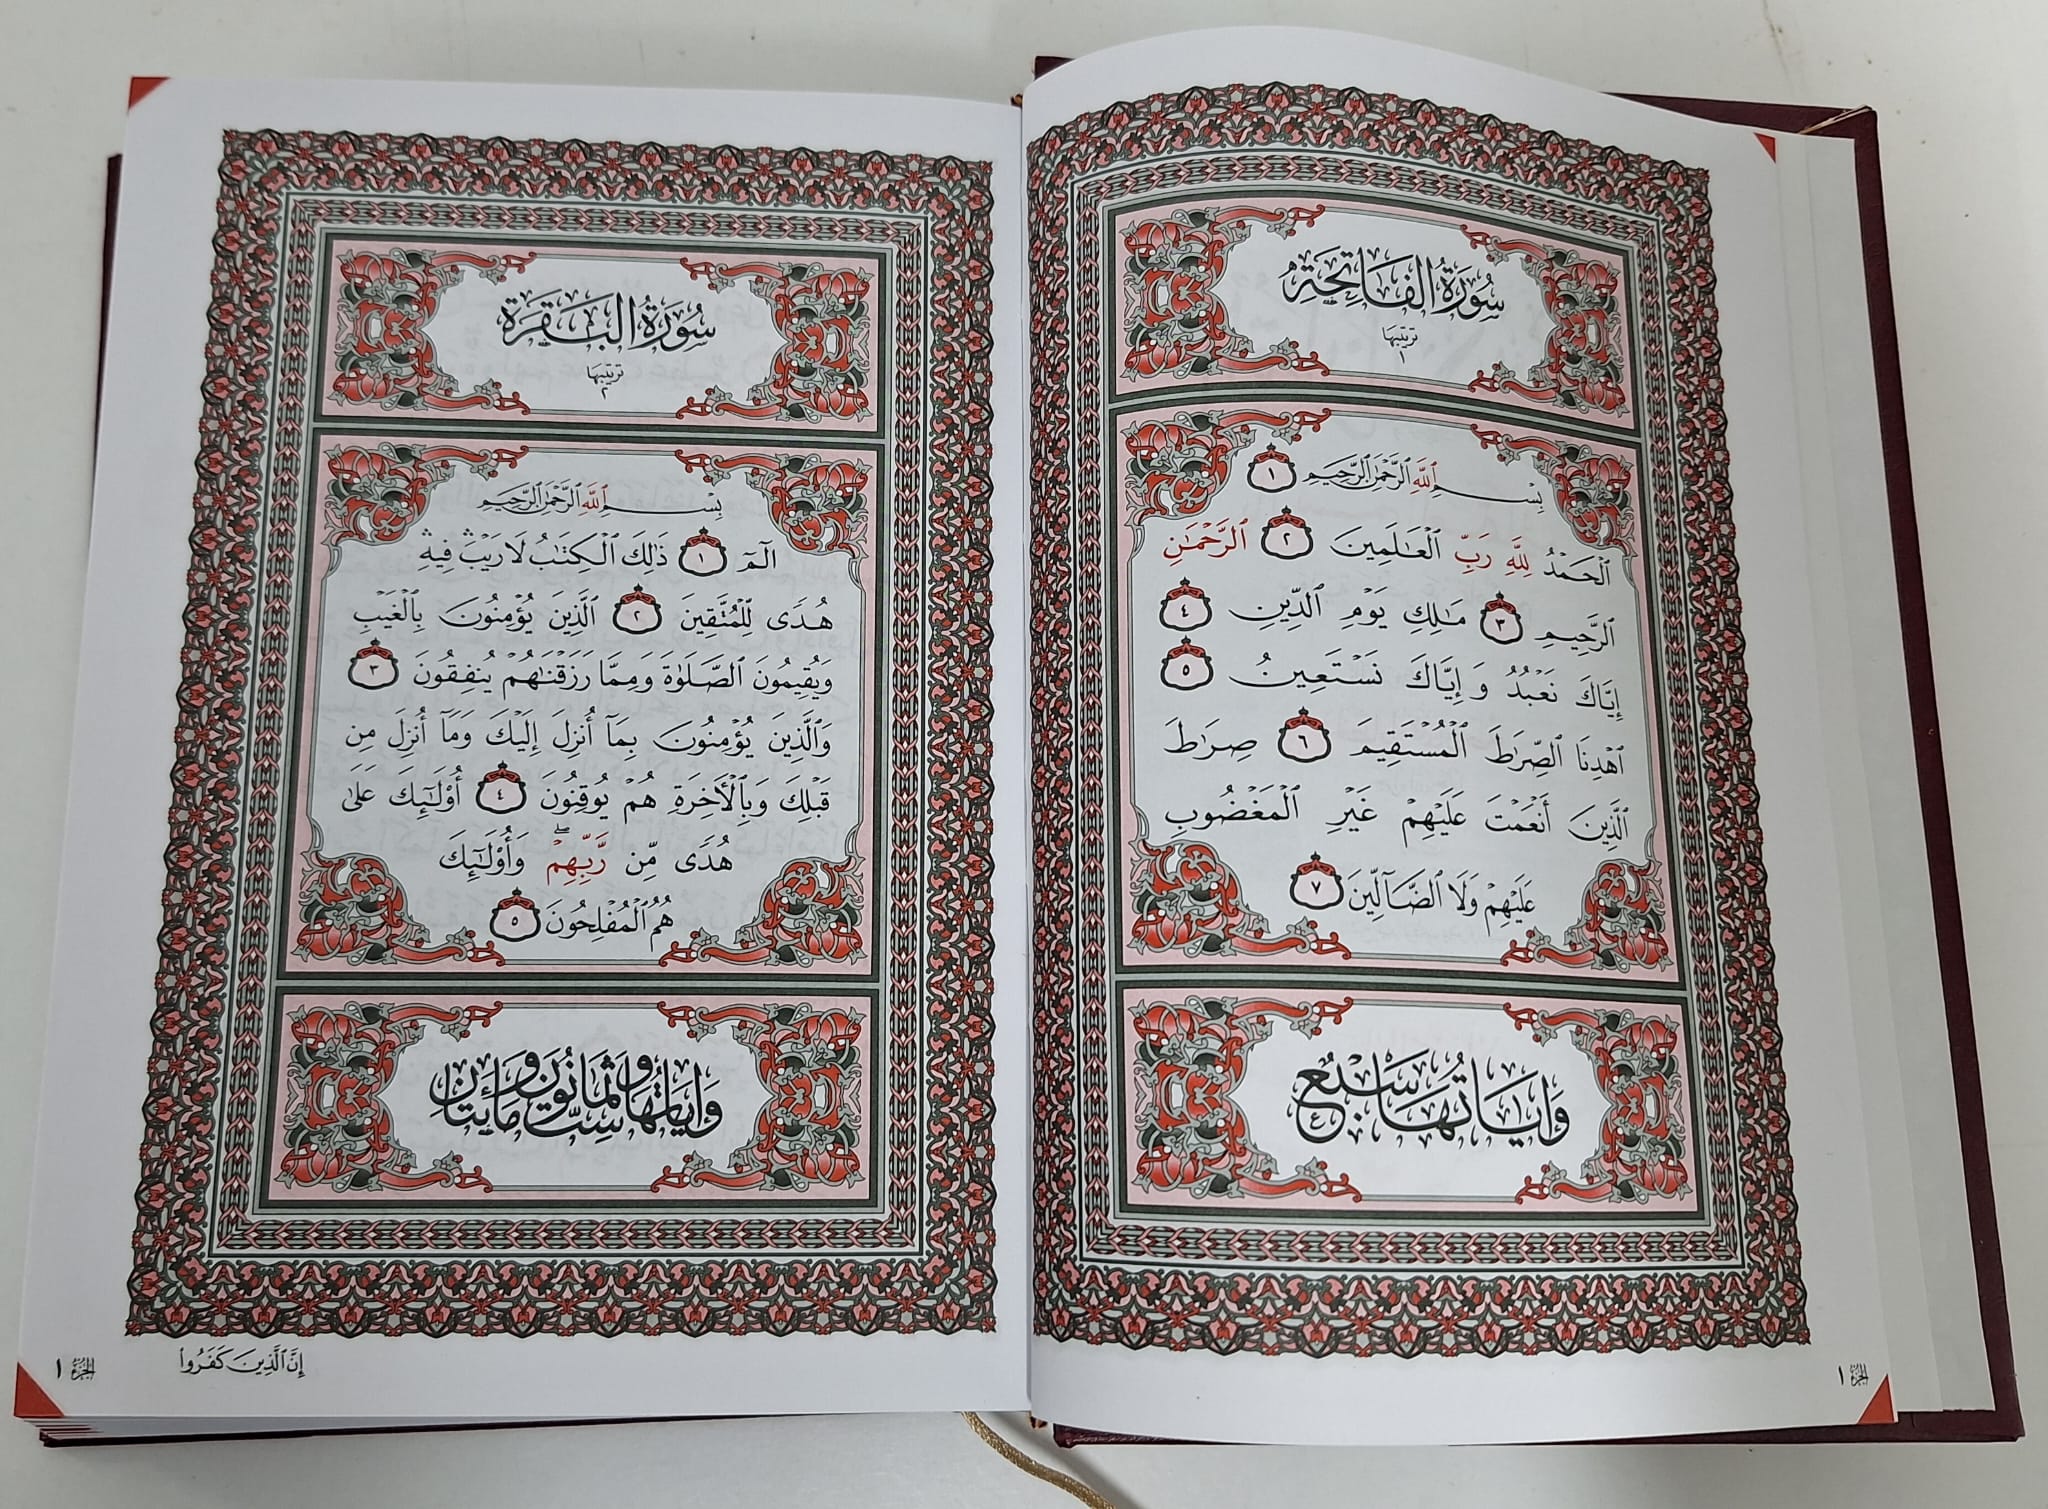 سُورَةُ الْفَاتِحَةِ
ترتيبها
١
بِسْمِ اللَّهِ الرَّحْمَٰنِ الرَّحِيمِ ١
ٱلْحَمْدُ لِلَّهِ رَبِّ ٱلْعَـٰلَمِينَ ٢ ٱلرَّحْمَـٰنِ
ٱلرَّحِيمِ ٣ مَـٰلِكِ يَوْمِ ٱلدِّينِ ٤
إِيَّاكَ نَعْبُدُ وَإِيَّاكَ نَسْتَعِينُ ٥
ٱهْدِنَا ٱلصِّرَٰطَ ٱلْمُسْتَقِيمَ ٦ صِرَٰطَ
ٱلَّذِينَ أَنْعَمْتَ عَلَيْهِمْ غَيْرِ ٱلْمَغْضُوبِ
عَلَيْهِمْ وَلَا ٱلضَّآلِّينَ ٧
وَآيَاتُهَا سَبْعٌ
الجزء ١
سُورَةُ الْبَقَرَةِ
ترتيبها
٢
بِسْمِ اللَّهِ الرَّحْمَٰنِ الرَّحِيمِ
الٓمٓ ١ ذَٰلِكَ ٱلْكِتَـٰبُ لَا رَيْبَ ۛ فِيهِ ۛ
هُدًى لِّلْمُتَّقِينَ ٢ ٱلَّذِينَ يُؤْمِنُونَ بِٱلْغَيْبِ
وَيُقِيمُونَ ٱلصَّلَوٰةَ وَمِمَّا رَزَقْنَـٰهُمْ يُنفِقُونَ ٣
وَٱلَّذِينَ يُؤْمِنُونَ بِمَآ أُنزِلَ إِلَيْكَ وَمَآ أُنزِلَ مِن
قَبْلِكَ وَبِٱلْـَٔاخِرَةِ هُمْ يُوقِنُونَ ٤ أُو۟لَـٰٓئِكَ عَلَىٰ
هُدًى مِّن رَّبِّهِمْ ۖ وَأُو۟لَـٰٓئِكَ
هُمُ ٱلْمُفْلِحُونَ ٥
وَآيَاتُهَا سِتٌّ وَثَمَانُونَ وَمِائَتَانِ
إِنَّ ٱلَّذِينَ كَفَرُوا۟
الجزء ١